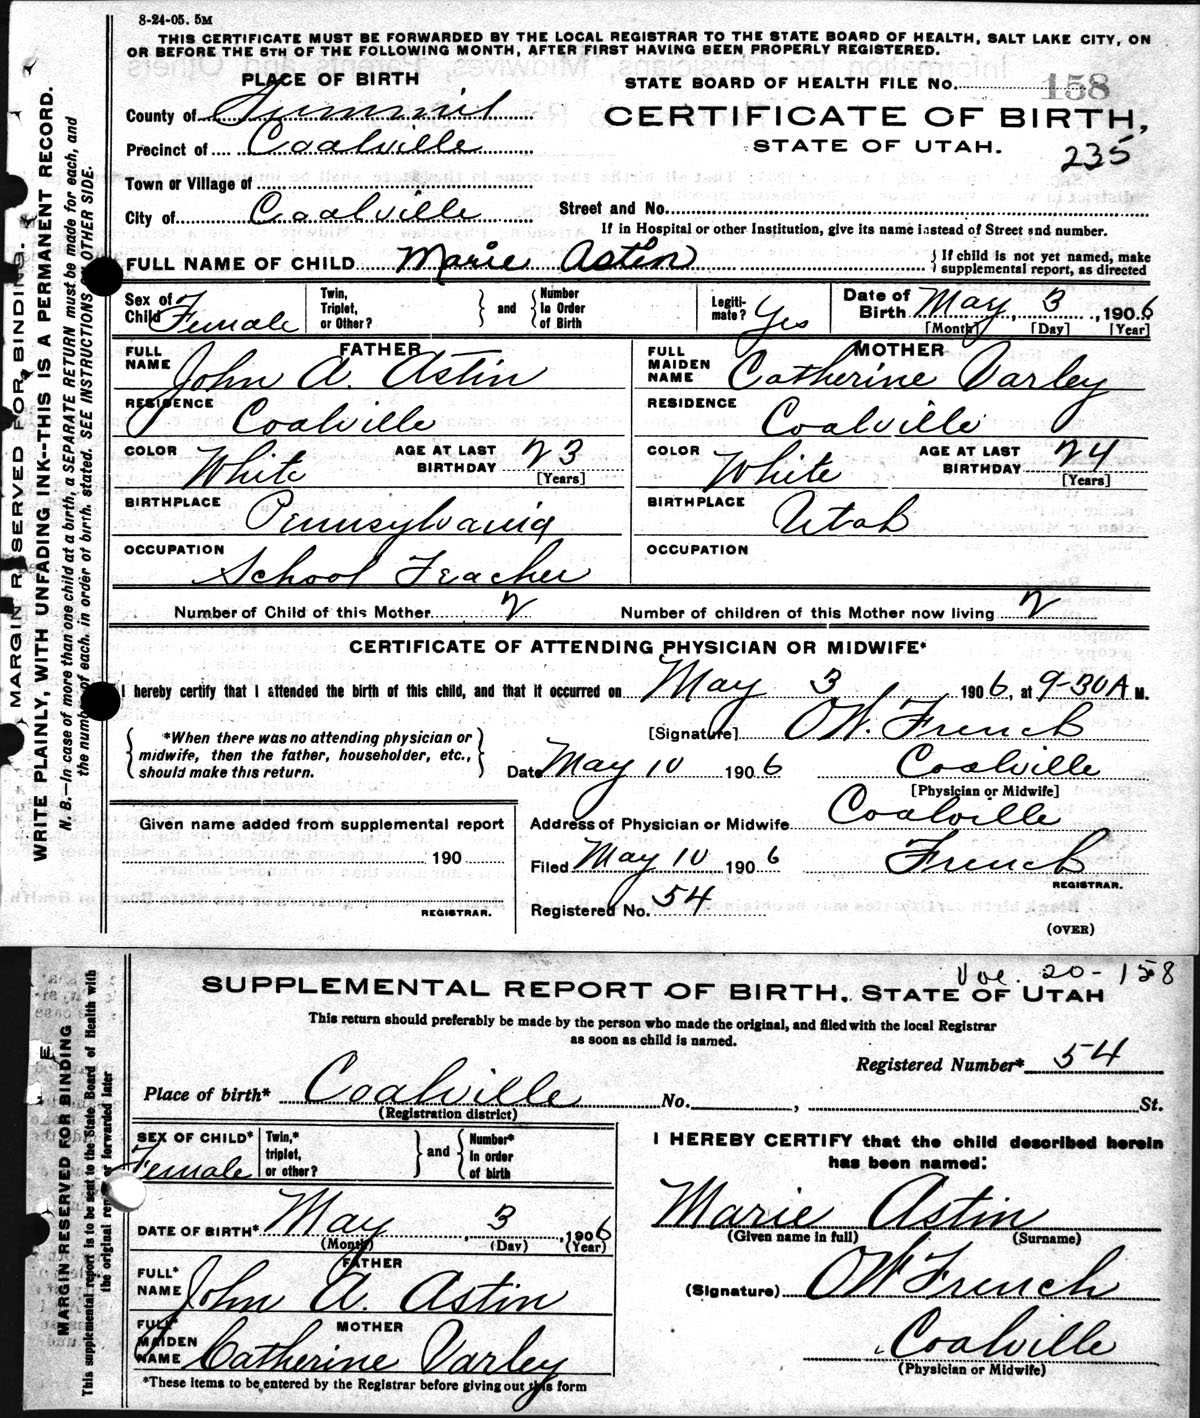 8-24-05. 5M
THIS CERTIFICATE MUST BE FORWARDED BY THE LOCAL REGISTRAR TO THE STATE BOARD OF HEALTH, SALT LAKE CITY, ON
OR BEFORE THE 5TH OF THE FOLLOWING MONTH, AFTER FIRST HAVING BEEN PROPERLY REGISTERED.
PLACE OF BIRTH
STATE BOARD OF HEALTH FILE No. 158
County of Summit
CERTIFICATE OF BIRTH,
Precinct of Coalville
STATE OF UTAH.
235
Town or Village of
City of Coalville Street and No.
If in Hospital or other Institution, give its name instead of Street and number.
FULL NAME OF CHILD Marie Astin { If child is not yet named, make supplemental report, as directed
Sex of Child Female Twin, Triplet, or Other? } and { Number in Order of Birth Legitimate? Yes Date of Birth May 3, 1906
[Month] [Day] [Year]
FATHER MOTHER
FULL NAME John A. Astin FULL MAIDEN NAME Catherine Varley
RESIDENCE Coalville RESIDENCE Coalville
COLOR White AGE AT LAST BIRTHDAY 23 [Years] COLOR White AGE AT LAST BIRTHDAY 24 [Years]
BIRTHPLACE Pennsylvania BIRTHPLACE Utah
OCCUPATION School Teacher OCCUPATION
Number of Child of this Mother 2 Number of children of this Mother now living 2
CERTIFICATE OF ATTENDING PHYSICIAN OR MIDWIFE*
I hereby certify that I attended the birth of this child, and that it occurred on May 3 1906, at 9-30 A M.
{ *When there was no attending physician or midwife, then the father, householder, etc., should make this return. }
[Signature] O W. French
Date May 10 1906 Coalville
[Physician or Midwife]
Given name added from supplemental report
Address of Physician or Midwife Coalville
190
Filed May 10 1906 French
REGISTRAR.
REGISTRAR.
Registered No. 54
(OVER)
MARGIN RESERVED FOR BINDING.
WRITE PLAINLY, WITH UNFADING INK--THIS IS A PERMANENT RECORD.
N. B.—In case of more than one child at a birth, a SEPARATE RETURN must be made for each, and
the number of each, in order of birth, stated. SEE INSTRUCTIONS OTHER SIDE.
Vol. 20-158
SUPPLEMENTAL REPORT OF BIRTH. STATE OF UTAH
This return should preferably be made by the person who made the original, and filed with the local Registrar
as soon as child is named.
Registered Number* 54
Place of birth* Coalville No. , St.
(Registration district)
SEX OF CHILD* Female Twin,* triplet, or other? } and { Number* in order of birth
I HEREBY CERTIFY that the child described herein
has been named:
DATE OF BIRTH* May 3, 1906
(Month) (Day) (Year)
Marie Astin
(Given name in full) (Surname)
FATHER
FULL* NAME John A. Astin
(Signature) O W French
MOTHER
FULL* MAIDEN NAME Catherine Varley
Coalville
(Physician or Midwife)
*These items to be entered by the Registrar before giving out this form
MARGIN RESERVED FOR BINDING
This supplemental report is to be sent to the State Board of Health with
the original or forwarded later